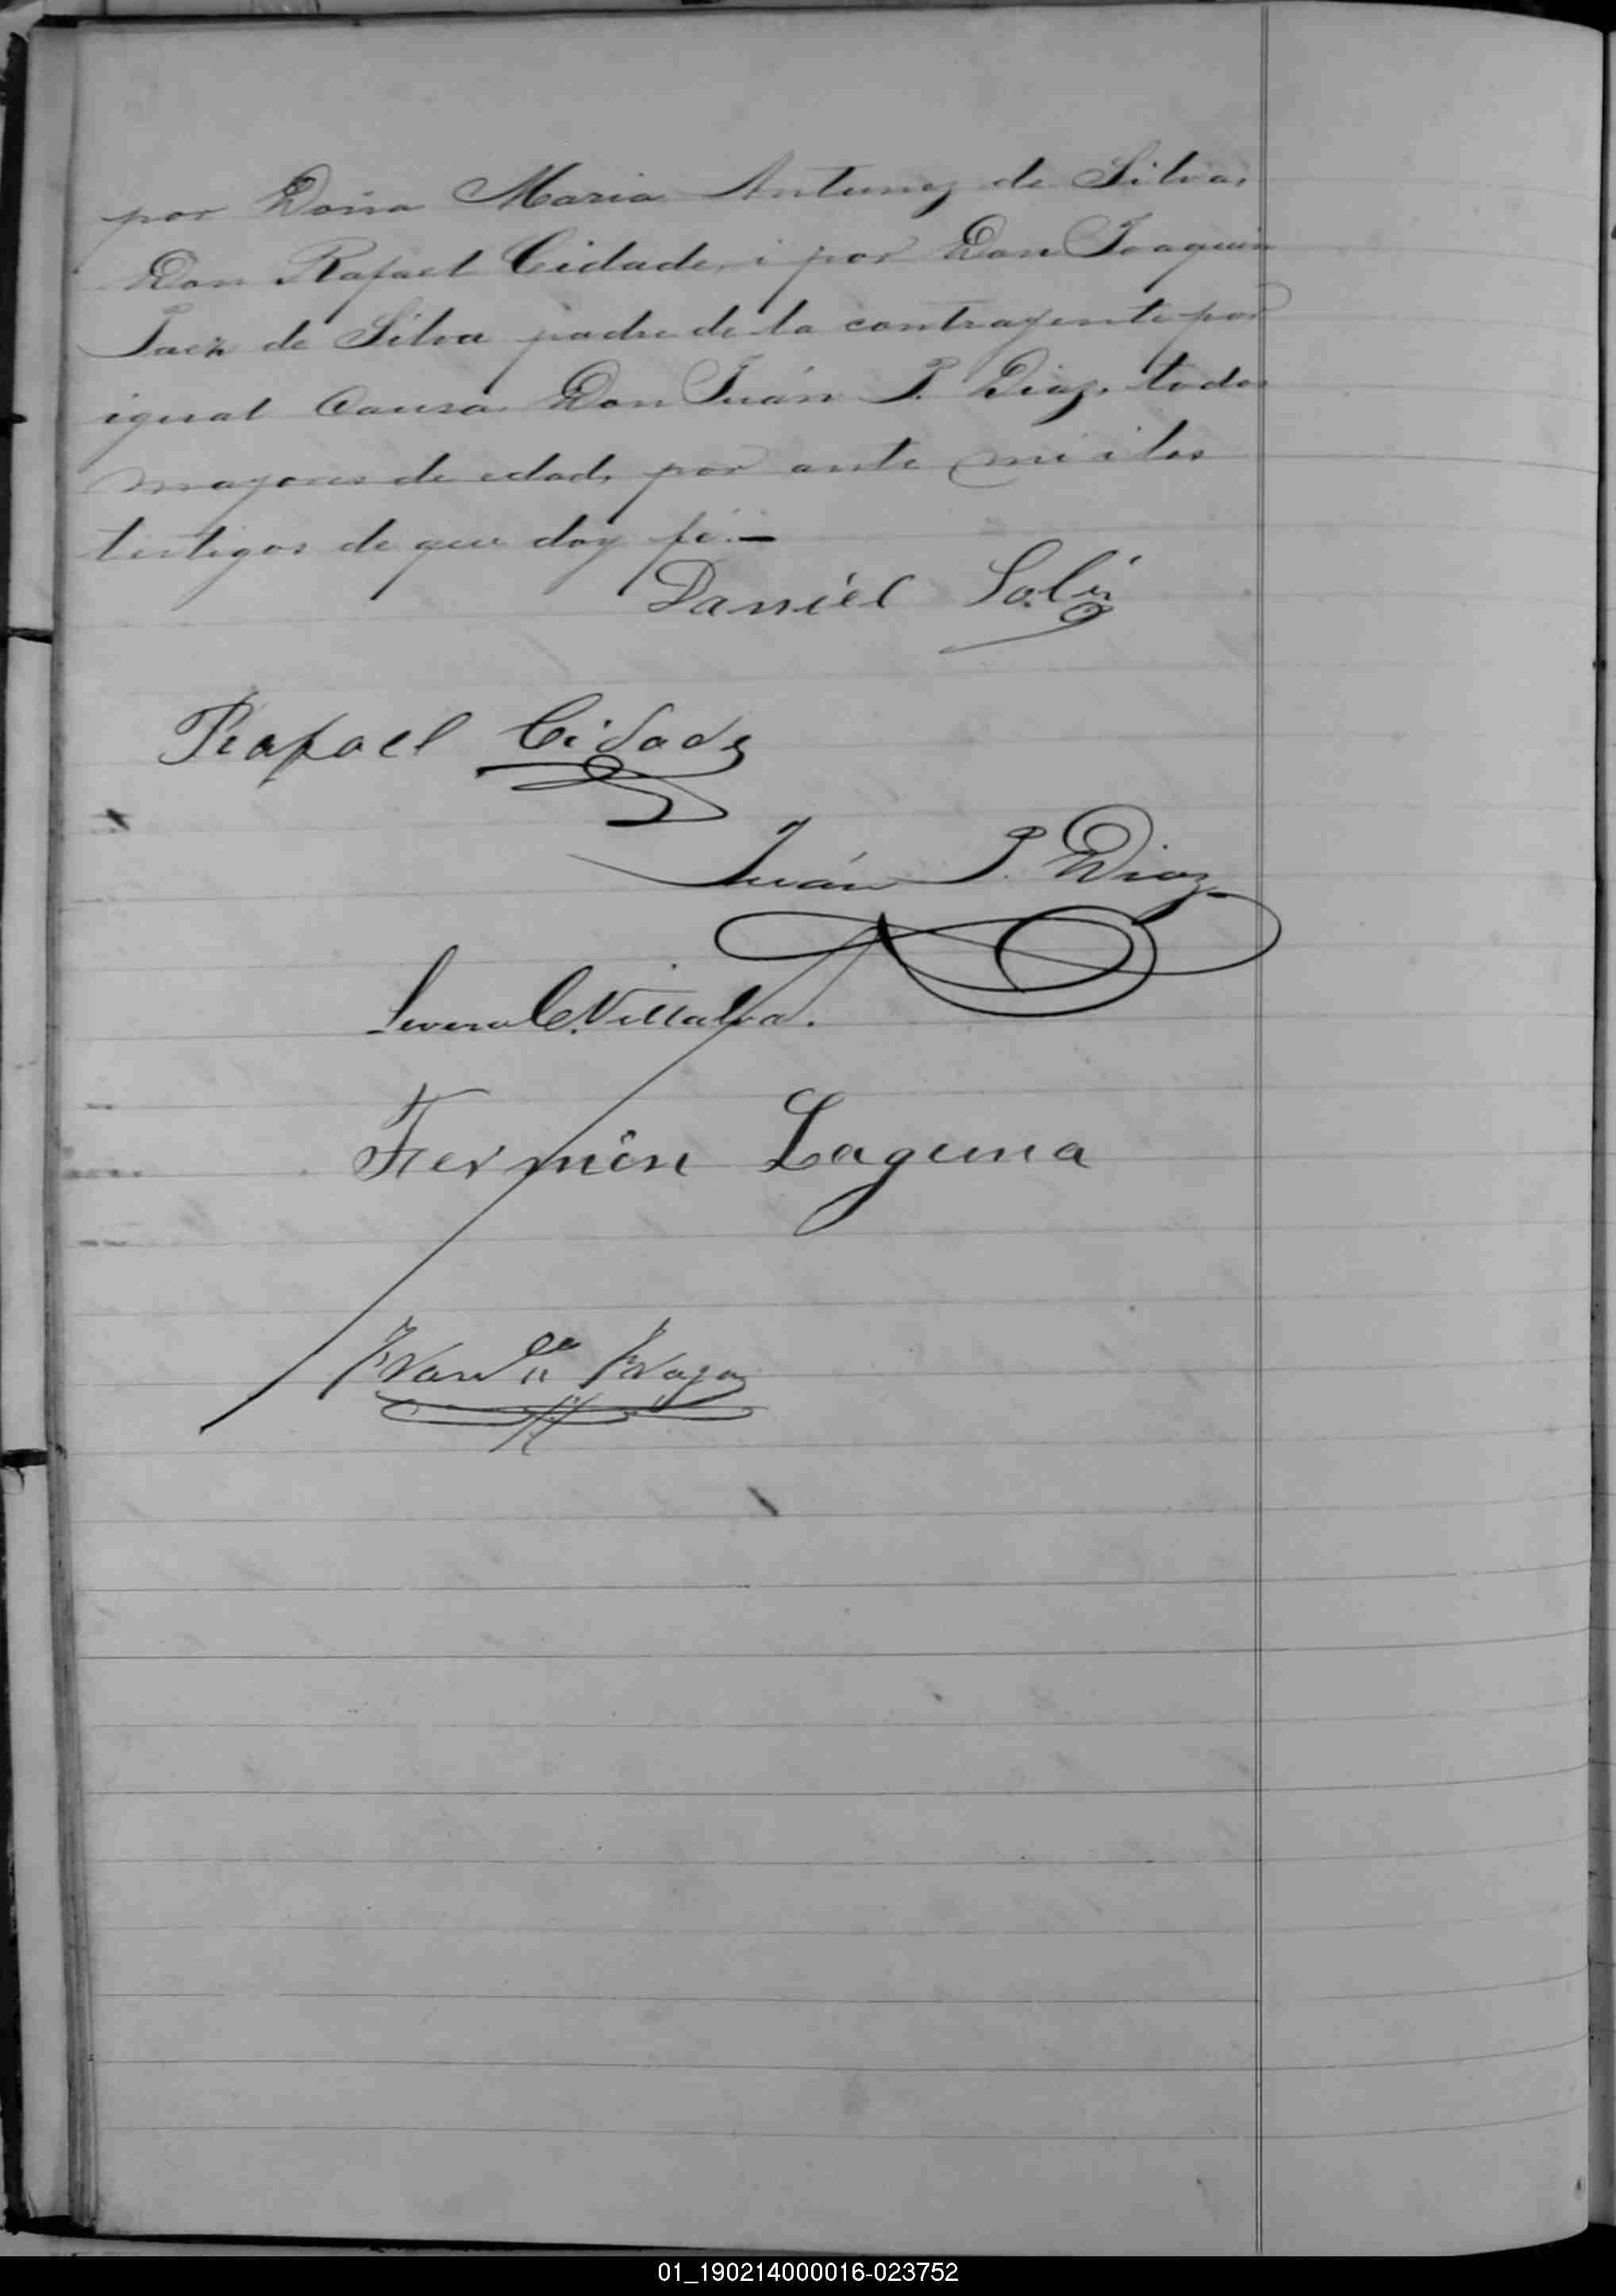 por Doña Maria Antunez de Silva,
Don Rafael Cidade, i por Don Joaquin
Paez de Silva padre de la contrayente por
igual causa Don Juán P. Diaz, todos
mayores de edad, por ante mi i los
testigos de que doy fé.—
Daniel Solis
Rafael Cidade
Juán P. Diaz
Severo C. Villalva.
Fermin Laguna
01_190214000016-023752